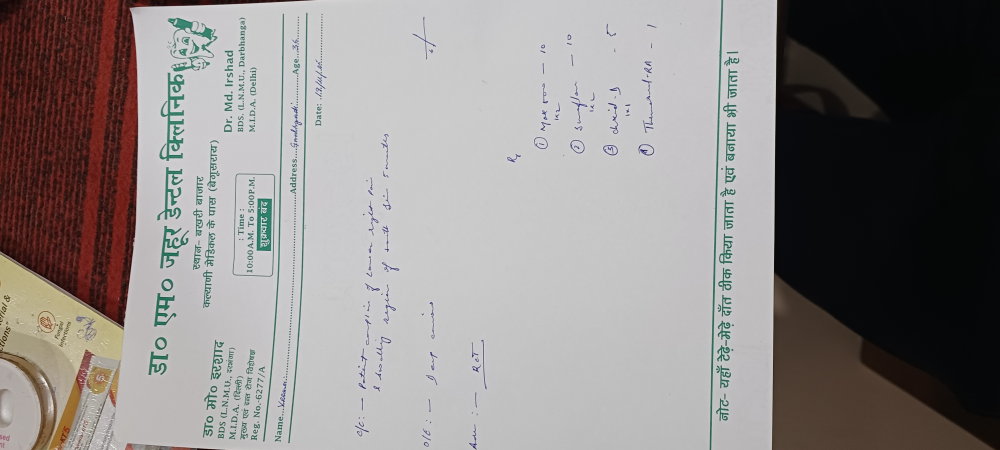 डा० एम० जहूर डेन्टल क्लिनिक
स्थान- बखरी बाजार
कल्याणी मेडिकल के पास (बेगूसराय)
डा० मो० इरशाद
BDS (L.N.M.U., दरभंगा)
M.I.D.A. (दिल्ली)
मुख एवं दन्त रोग विशेषज्ञ
Reg. No.-6277/A
: Time :
10:00A.M. To 5:00P.M.
शुक्रवार बंद
Dr. Md. Irshad
BDS. (L.N.M.U., Darbhanga)
M.I.D.A. (Delhi)
Name Address Age 36
Date:
C/C:- Patient complain of Lower right pain
& swelling region of tooth since 5 months
O/E:- Deep caries
Adv:- RCT
Rx
① Mox 500 - 10
1x2
② - 10
1x2
③ - 5
1x1
④ - 1
नोट- यहाँ टेढ़े-मेढ़े दाँत ठीक किया जाता है एवं बनाया भी जाता है।
Fungal
Infections